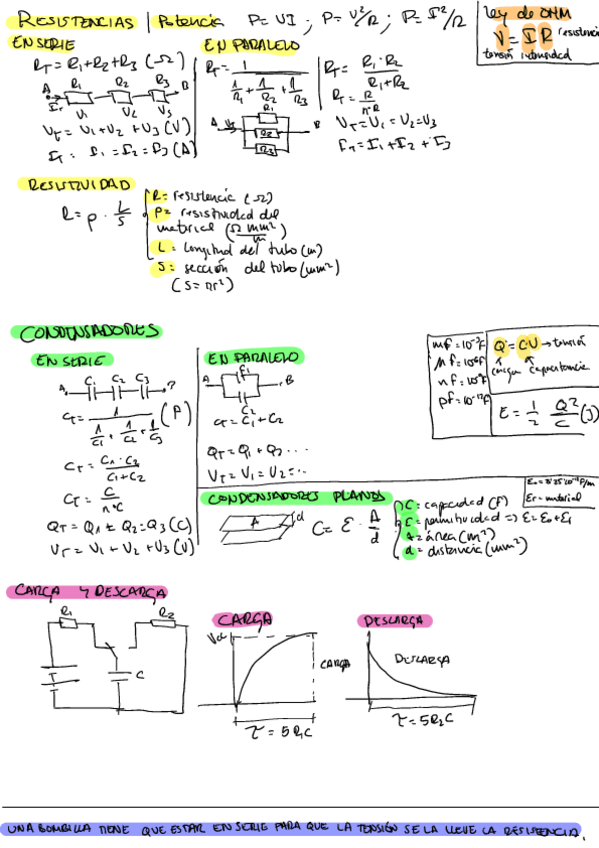 RESISTENCIAS | Potencia P=VI ; P=V²/R ; P=I²/R
Ley de OHM
V = I R resistencia
tensión intensidad
EN SERIE
R_T = R₁+R₂+R₃ (Ω)
R₁ R₂ R₃
A B
I_T
V₁ V₂ V₃
V_T = V₁+V₂+V₃ (V)
I_T = I₁=I₂=I₃ (A)
EN PARALELO
R_T = 1 / (1/R₁ + 1/R₂ + 1/R₃)
R_T = R₁·R₂ / R₁+R₂
R_T = R / nºR
R₁
A R₂ B
R₃
V_T=U₁=U₂=U₃
I_T=I₁+I₂+I₃
RESISTIVIDAD
R = ρ · L/S
R= resistencia (Ω)
ρ= resistividad del
material (Ω mm²/m)
L= longitud del tubo (m)
S= sección del tubo (mm²)
(S=πr²)
CONDENSADORES
EN SERIE
C₁ C₂ C₃
A
C_T = 1 / (1/C₁ + 1/C₂ + 1/C₃) (F)
C_T = C₁·C₂ / C₁+C₂
C_T = C / nºC
Q_T = Q₁ = Q₂=Q₃ (C)
V_T = V₁ + V₂ + V₃ (V)
EN PARALELO
A B
C₂
C_T = C₁+C₂
Q_T = Q₁ + Q₂ ...
V_T = V₁ = U₂ = ...
mf = 10⁻³F
μf = 10⁻⁶F
nf = 10⁻⁹F
pf = 10⁻¹²F
Q = C·V → tensión
carga capacitancia
E = 1/2 Q²/C (J)
CONDENSADORES PLANOS
Er = material
A d
C = ε · A/d
C= capacidad (F)
ε= permitividad => ε=ε₀+ε₁
A= área (m²)
d= distancia (mm²)
CARGA Y DESCARGA
R₁ R₂
T C
CARGA
Vcc
CARGA
τ = 5R₁C
DESCARGA
DESCARGA
τ = 5R₂C
UNA BOMBILLA TIENE QUE ESTAR EN SERIE PARA QUE LA TENSIÓN SE LA LLEVE LA RESISTENCIA.